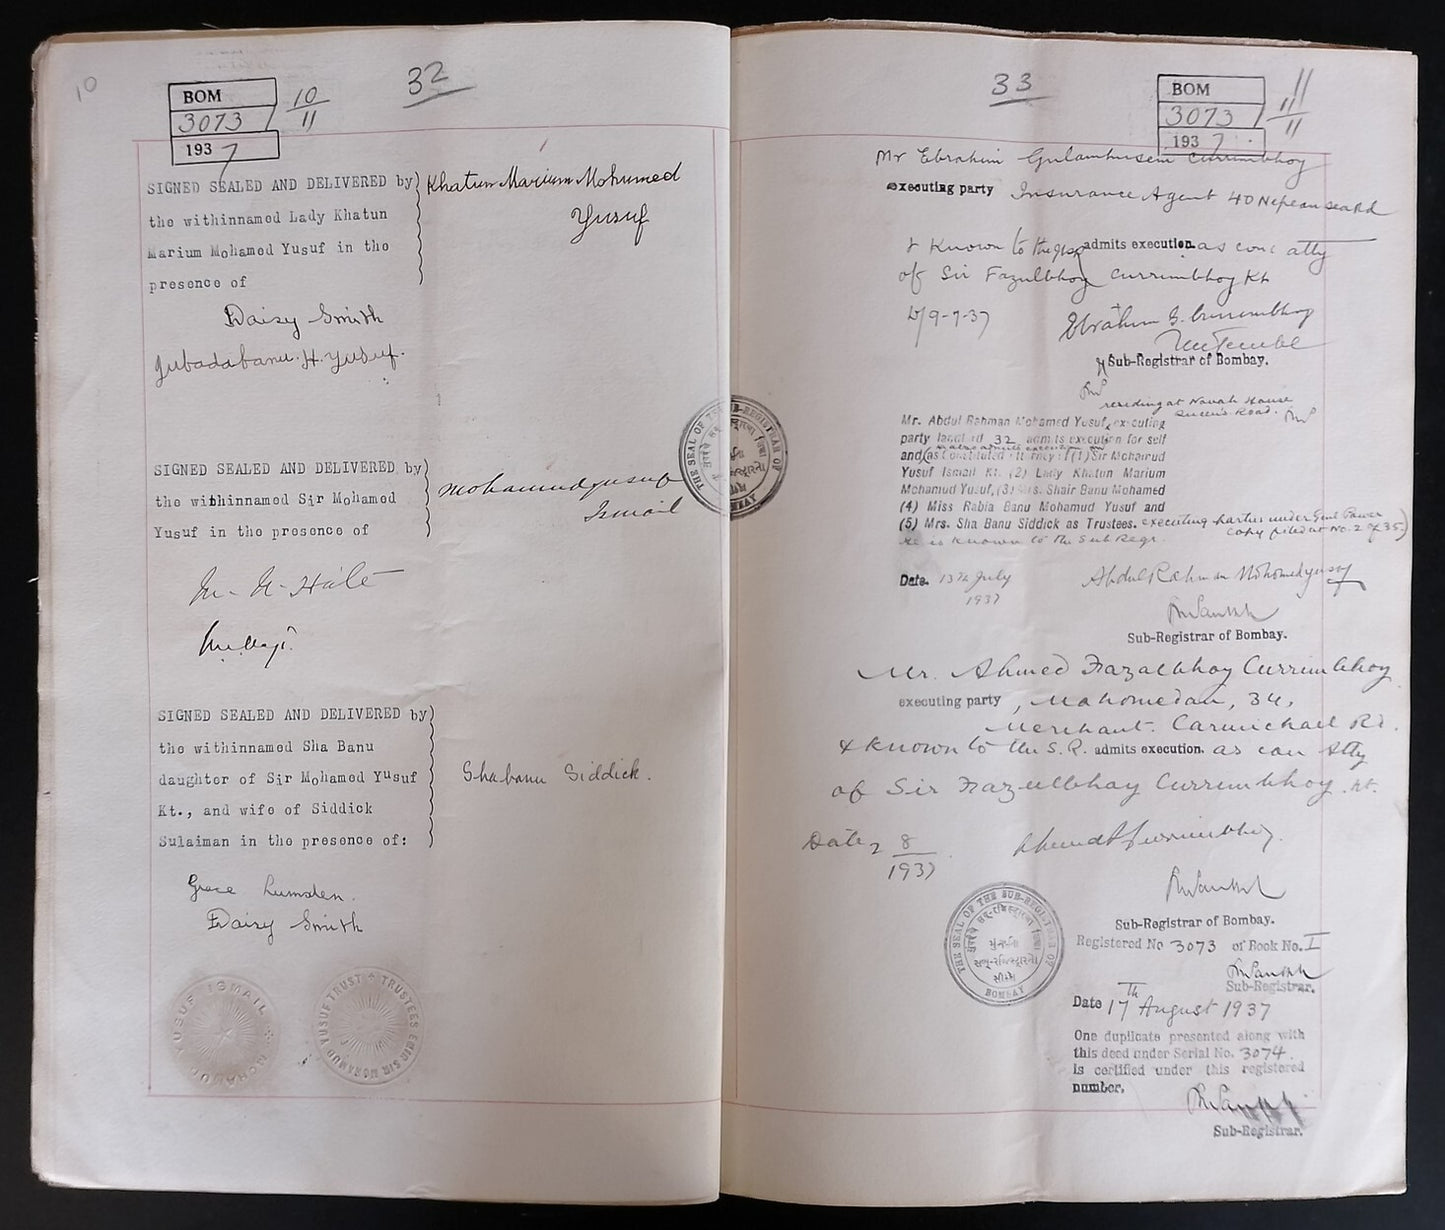 10
BOM
3073
1937
10
11
32
SIGNED SEALED AND DELIVERED by
the withinnamed Lady Khatun
Marium Mohamed Yusuf in the
presence of
Khatun Marium Mohumed
Yusuf
Daisy Smith
H. Yusuf.
SIGNED SEALED AND DELIVERED by
the withinnamed Sir Mohamed
Yusuf in the presence of
Mohamudyusuf
Ismail
SIGNED SEALED AND DELIVERED by
the withinnamed Sha Banu
daughter of Sir Mohamed Yusuf
Kt., and wife of Siddick
Sulaiman in the presence of:
Shabanu Siddick.
Grace Lumsden.
Daisy Smith
MOHAMUD YUSUF ISMAIL
SIR MOHAMUD YUSUF TRUST TRUSTEES
THE SEAL OF THE SUB-REGISTRAR OF
BOMBAY
33
BOM
3073
1937
11
11
Mr Ebrahim Gulamhusein Currimbhoy
executing party Insurance Agent 40 Nepean Sea Rd
& Known to the admits execution as atty
of Sir Fazulbhoy Currimbhoy Kt
9-7-37
Ebrahim G. Currimbhoy
Sub-Registrar of Bombay.
residing at Navab House
Queen's Road.
Mr. Abdul Rahman Mohamed Yusuf, executing
party 32 admits execution for self
and (as constituted attorney (1) Sir Mohamud
Yusuf Ismail Kt. (2) Lady Khatun Marium
Mohamud Yusuf, (3) Mrs. Shair Banu Mohamed
(4) Miss Rabia Banu Mohamud Yusuf and
(5) Mrs. Sha Banu Siddick as Trustees. executing parties under Genl Power
copy filed at No. 2 of 35)
He is known to the Sub Regr.
Date. 13th July
1937
Abdul Rahman Mohomedyusuf
Sub-Registrar of Bombay.
Mr. Ahmed Fazalbhoy Currimbhoy
executing party, Mahomedan, 34,
Merchant. Carmichael Rd.
& Known to the S. R. admits execution. as con Atty
of Sir Fazulbhoy Currimbhoy. Kt.
Date 2 8
1937
Sub-Registrar of Bombay.
THE SEAL OF THE SUB-REGISTRAR OF
BOMBAY
Registered No 3073 of Book No. I
Sub-Registrar.
Date 17th August 1937
One duplicate presented along with
this deed under Serial No. 3074.
is certified under this registered
number.
Sub-Registrar.